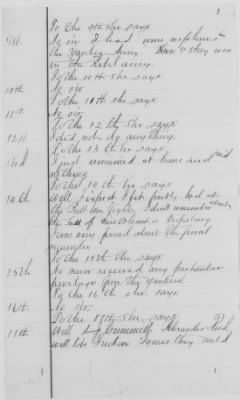 3
To the 9th she says
9th No sir I had some nephews in
the Yankee Army and they were
in the Rebel army.
To the 10th she says
10th No sir.
To the 11th she says
11th No sir,
To the 12th she says
12th I did not do anything.
To the 13th he says
13d I just remained at home and said
nothing
To the 14th he says
14th Well I expect I felt pretty bad at
the Bull run fight. I dont remember about
the fall of or Vicksburg
I was very proud about the final
surrender
To the 15th she says
15th No never received any particular
privileges from the Yankees.
To the 16th she says
16th No sir.
To the 17th she says.
17th Well Alexander Reed,
well they could